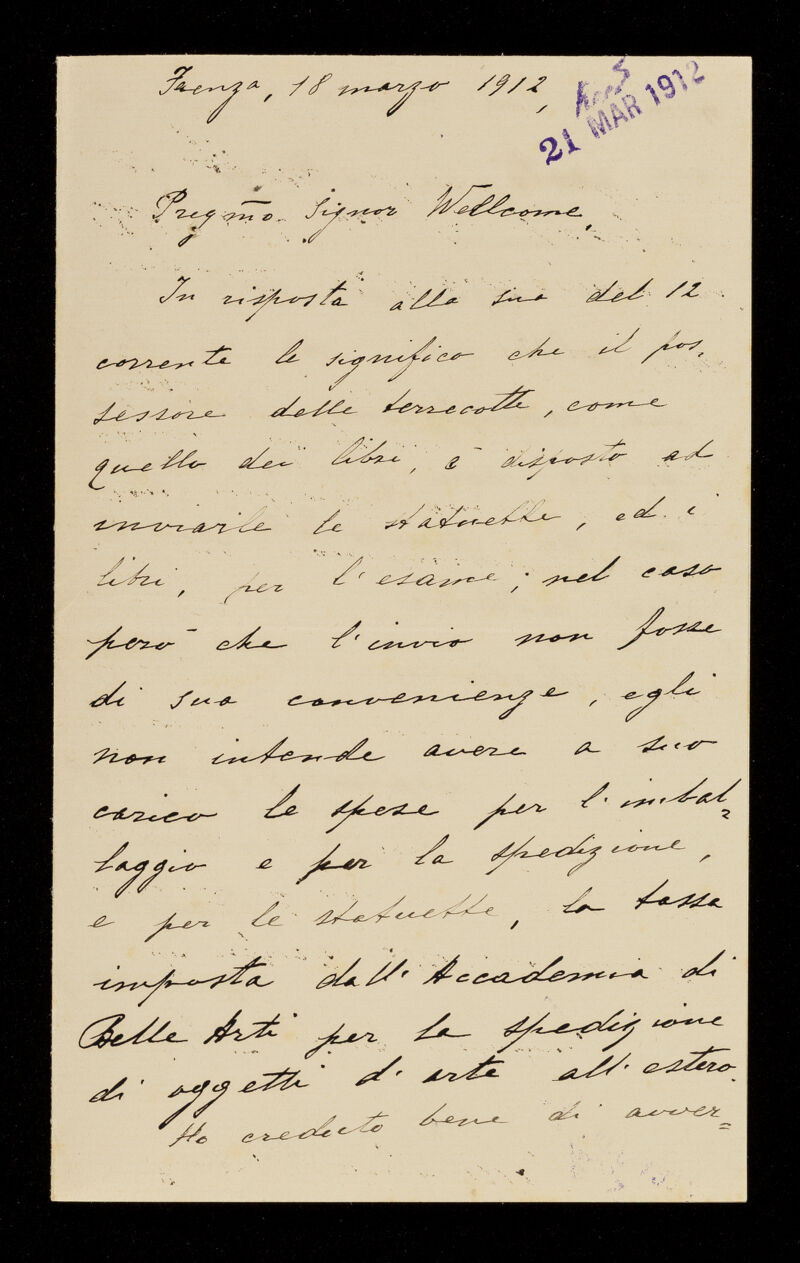 Faenza, 18 marzo 1912,
21 MAR 1912
Pregm̄o Signor Wellcome,
In risposta alla sua del 12
corrente le significo che il pos-
sessore delle terrecotte, come
quello dei libri, è disposto ad
inviarle le statuette, ed i
libri, per l'esame; nel caso
però che l'invio non fosse
di sua convenienza, egli
non intende avere a suo
carico le spese per l'imbal=
laggio e per la spedizione,
e per le statuette, la tassa
imposta dall'Accademia di
Belle Arti per la spedizione
di oggetti d'arte all'estero.
Ho creduto bene di avver=